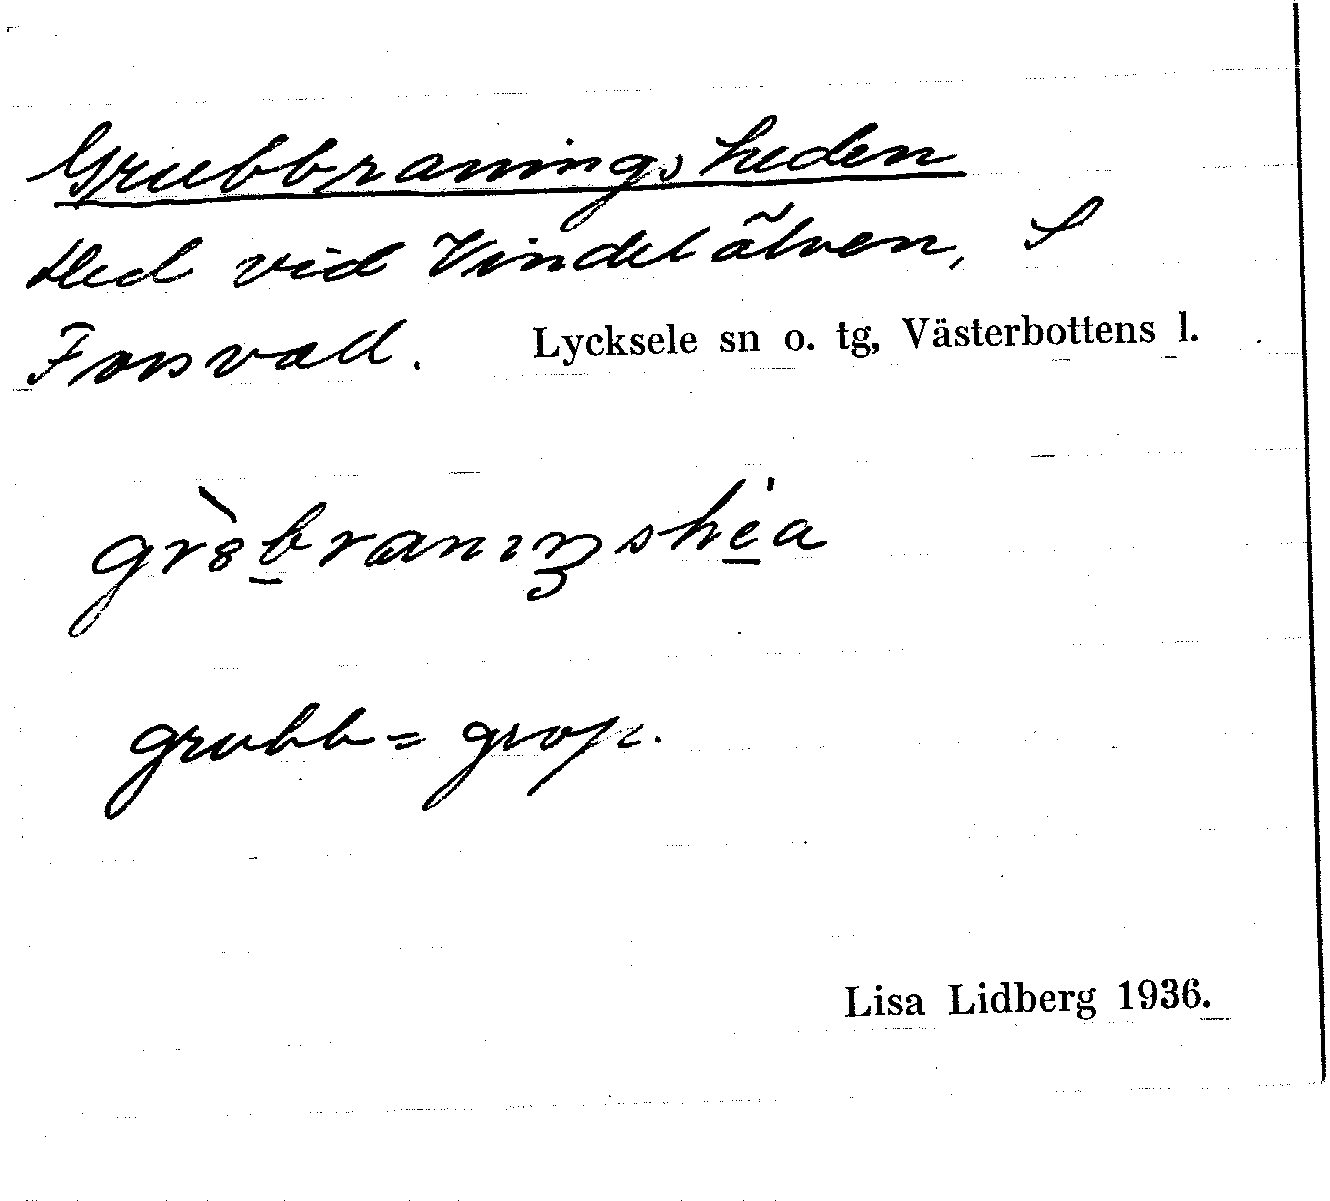 Grubbraningsheden
Hed vid Vindelälven, S
Forsvall. Lycksele sn o. tg, Västerbottens l.
grubb = grop.
Lisa Lidberg 1936.